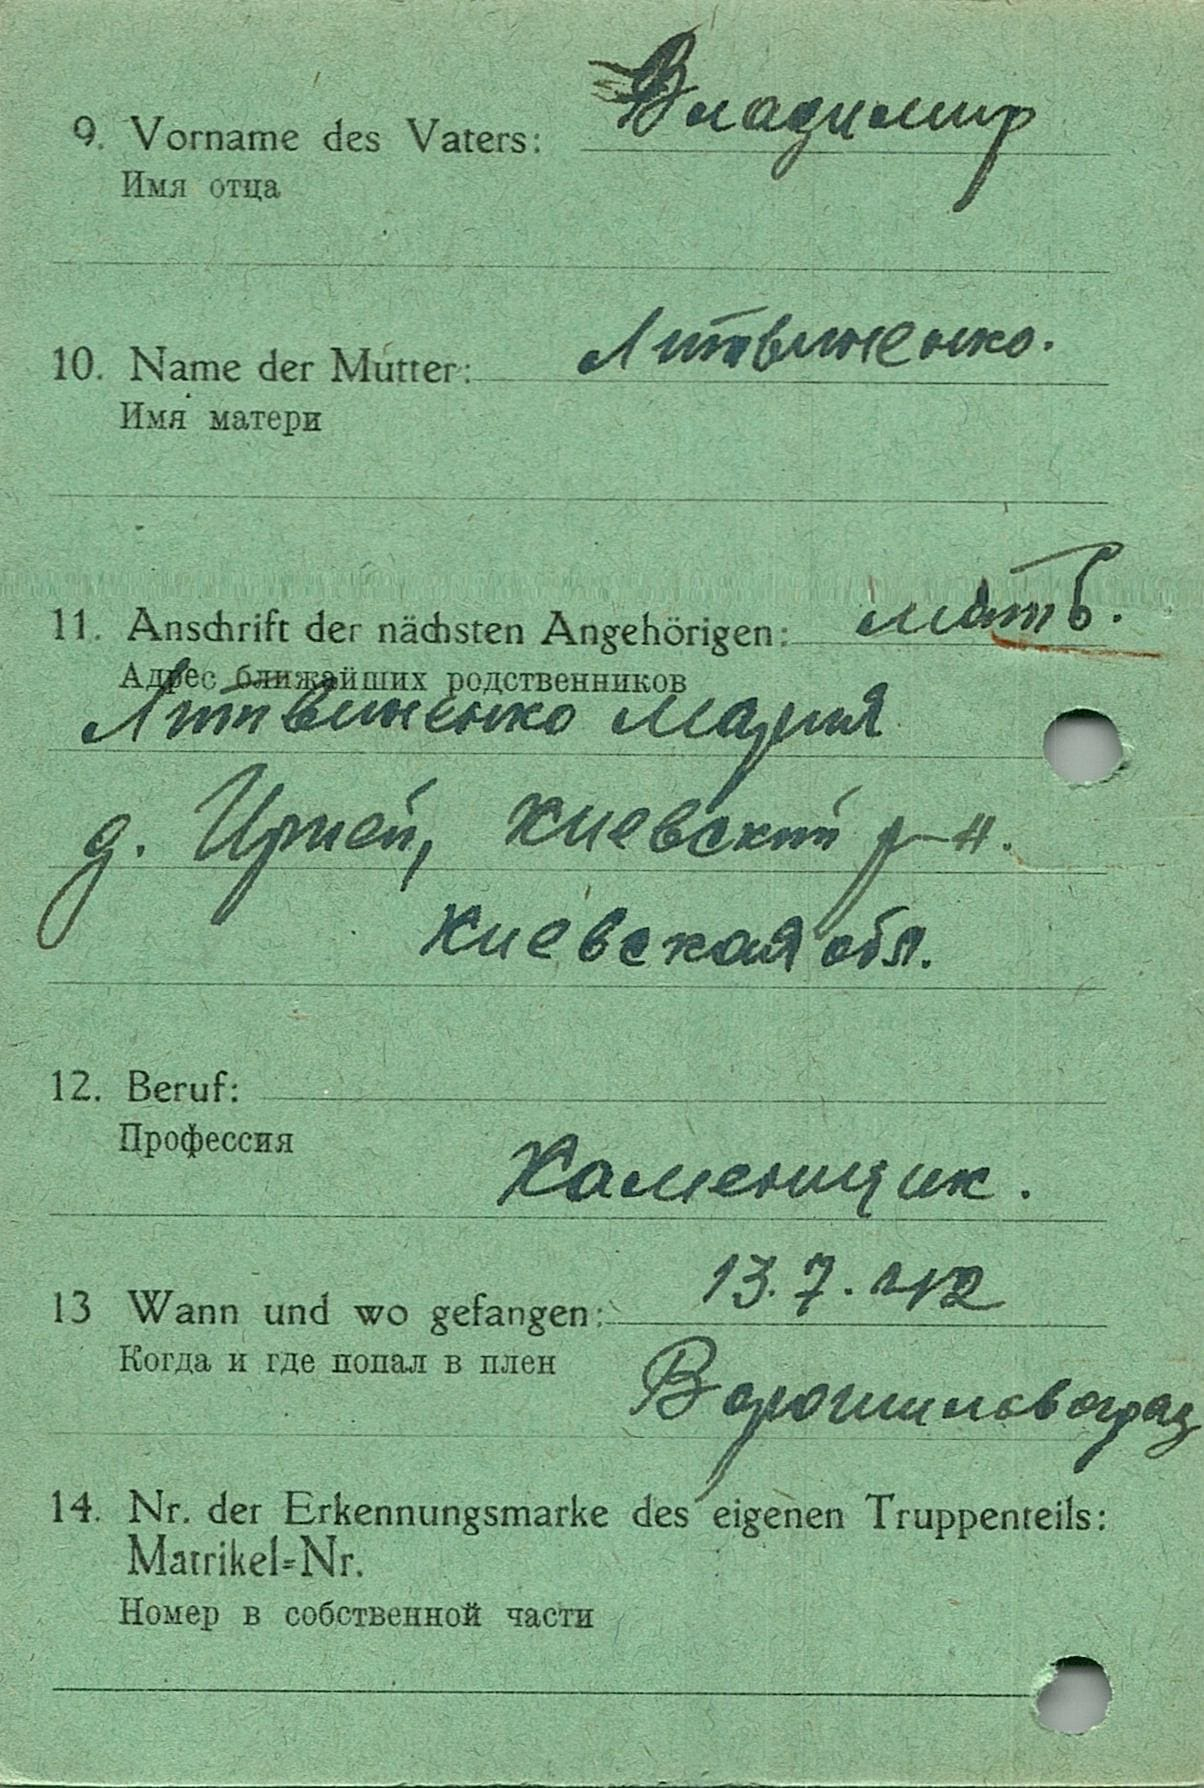 9. Vorname des Vaters: Владимир
Имя отца
10. Name der Mutter: Литвиненко.
Имя матери
11. Anschrift der nächsten Angehörigen: мать.
Адрес ближайших родственников
Литвиненко Мария
д. Ирпей, Киевский р-н.
Киевская обл.
12. Beruf:
Профессия
Каменщик.
13 Wann und wo gefangen: 13.7.42
Когда и где попал в плен
Ворошиловоград
14. Nr. der Erkennungsmarke des eigenen Truppenteils:
Matrikel=Nr.
Номер в собственной части